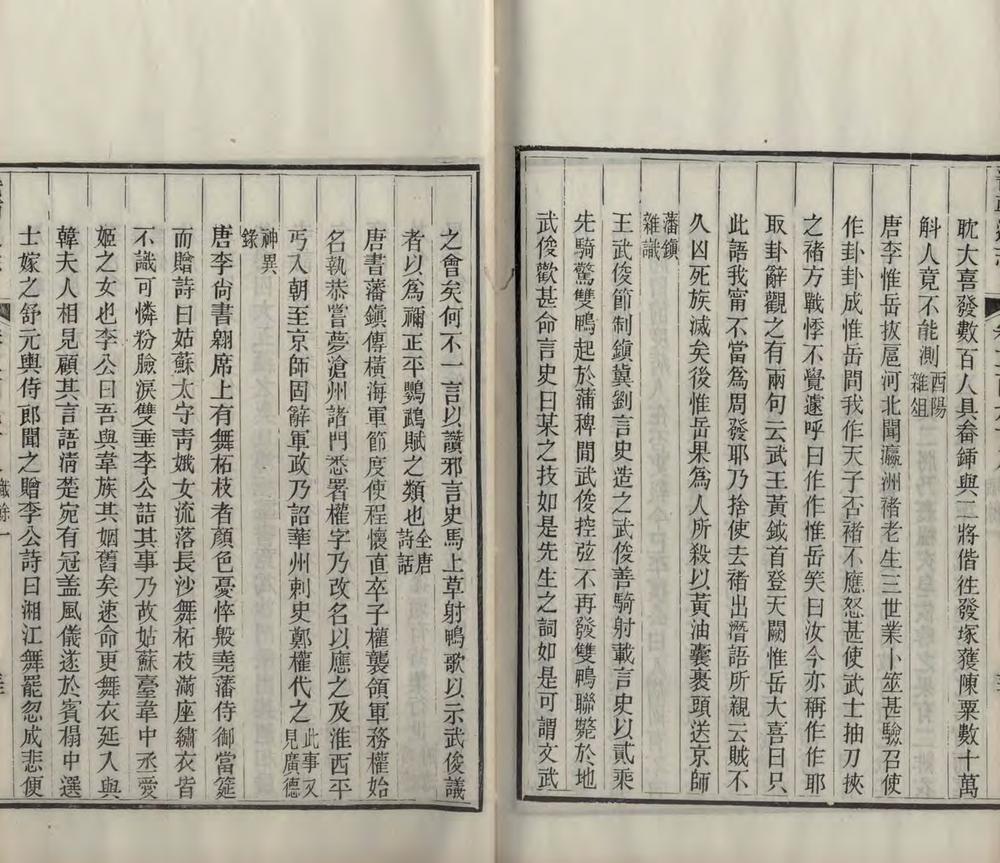 耽大喜發數百人具畚鍤與二將偕徃發塚獲陳粟數十萬
斛人竟不能測酉陽雜俎
唐李惟岳拔扈河北聞瀛洲禇老生三世業卜筮甚驗召使
作卦卦成惟岳問我作天子否禇不應怒甚使武士抽刀挾
之禇方戰悸不覺遽呼曰作作惟岳笑曰汝今亦稱作作耶
取卦辭觀之有兩句云武王黃鉞首登天闕惟岳大喜曰只
此語我甯不當爲周發耶乃捨使去禇出潛語所親云賊不
久凶死族滅矣後惟岳果爲人所殺以黃油囊裹頭送京師
藩鎭雜識
王武俊節制鎭冀劉言史造之武俊善騎射載言史以貳乘
先騎驚雙鴨起於蒲稗間武俊控弦不再發雙鴨聯斃於地
武俊歡甚命言史曰某之技如是先生之詞如是可謂文武
之會矣何不一言以讚邪言史馬上草射鴨歌以示武俊議
者以爲禰正平鸚鵡賦之類也全唐詩話
唐書藩鎭傳橫海軍節度使程懷直卒子權襲領軍務權始
名執恭嘗夢滄州諸門悉署權字乃改名以應之及淮西平
丐入朝至京師固辭軍政乃詔華州刺史鄭權代之此事又見廣德
神異錄
唐李尙書翱席上有舞柘枝者顏色憂悴殷堯藩侍御當筵
而贈詩曰姑蘇太守靑娥女流落長沙舞柘枝滿座繡衣皆
不識可憐粉臉淚雙垂李公詰其事乃故姑蘇臺韋中丞愛
姬之女也李公曰吾與韋族其姻舊矣速命更舞衣延入與
韓夫人相見顧其言語淸楚宛有冠盖風儀遂於賓榻中選
士嫁之舒元輿侍郎聞之贈李公詩曰湘江舞罷忽成悲便